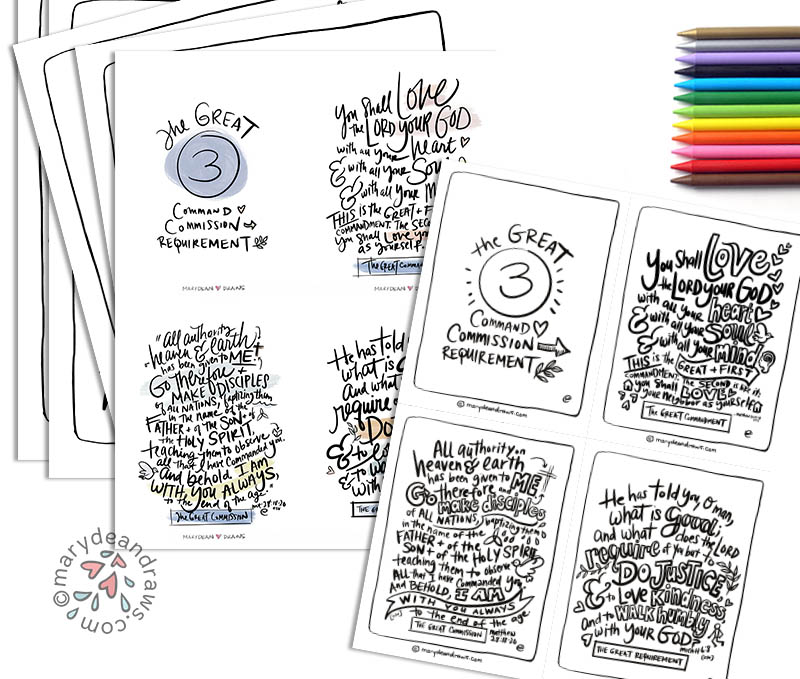 the GREAT
3
COMMAND
COMMISSION
REQUIREMENT
MARYDEAN DRAWS
You shall Love
the LORD YOUR GOD
with all your heart
& with all your Soul
& with all your M
THIS is the GREAT + F
COMMANDMENT. THE SEC
you shall Love yo
as yourself.
THE GREAT COMMAN
MARYDEAN DRAWS
"All authority
heaven & earth
has been given to ME,
Go therefore +
MAKE DISCIPLES
of ALL NATIONS, baptizing them
in the name of the
FATHER + of the SON +
of the HOLY SPIRIT
teaching them to observe
all that I have commanded you.
and behold, I AM
WITH YOU ALWAYS,
to the end of the age."
mat 28:18-20
THE GREAT COMMISSION
MARYDEAN DRAWS
He has told
what is G
And what
require o
Do
& to lo
& to wa
with
THE GREA
the GREAT
3
COMMAND
COMMISSION
REQUIREMENT
© marydeandraws.com
You shall Love
the LORD YOUR GOD
with all your heart
& with all your Soul
& with all your MIND
THIS is the GREAT + FIRST
COMMANDMENT. THE SECOND is like it:
you shall LOVE
your neighbor as yourself
THE GREAT COMMANDMENT
© marydeandraws.com
All authority on
heaven & earth
has been given to ME
Go therefore and
make disciples
of ALL NATIONS, baptizing them
in the name of the
FATHER + of the
SON + of the HOLY SPIRIT
teaching them to observe
ALL that I have commanded you
And BEHOLD, I AM
WITH YOU ALWAYS
to the end of the age
THE GREAT COMMISSION
matthew
28:18-20
© marydeandraws.com
He has told you, O man,
what is Good;
and what does the LORD
require of you but to
DO JUSTICE,
& to Love kindness,
and to WALK humbly
with your GOD?
micah 6:8
THE GREAT REQUIREMENT
© marydeandraws.com
© marydeandraws.com